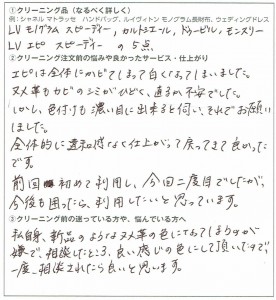 ①クリーニング品（なるべく詳しく）
例：シャネル マトラッセ ハンドバッグ、ルイヴィトン モノグラム長財布、ウェディングドレス
LV モノグラム スピーディー, カルトシエール, ドゥービル, モンスリー
LV エピ スピーディー の 5点
②クリーニング注文前の悩みや良かったサービス・仕上がり
エピは全体にカビてしまって白くなてしまいました。
ヌメ革もカビのシミがひどく、直るか不安でした。
しかし、色付けも濃い目に出来ると伺い、それでお願い
しました。
全体的に違和感なく仕上がって戻ってきて良かった
です。
前回初めて利用し、今回二度目でしたが、
今後も困ったら、利用したいと思っています。
③クリーニング前の迷っている方や、悩んでいる方へ
私自身、新品のようなヌメ革の色になってしまうのが
嫌で、相談したところ、良い感じの色にして頂いたので、
一度、相談されたら良いと思います。